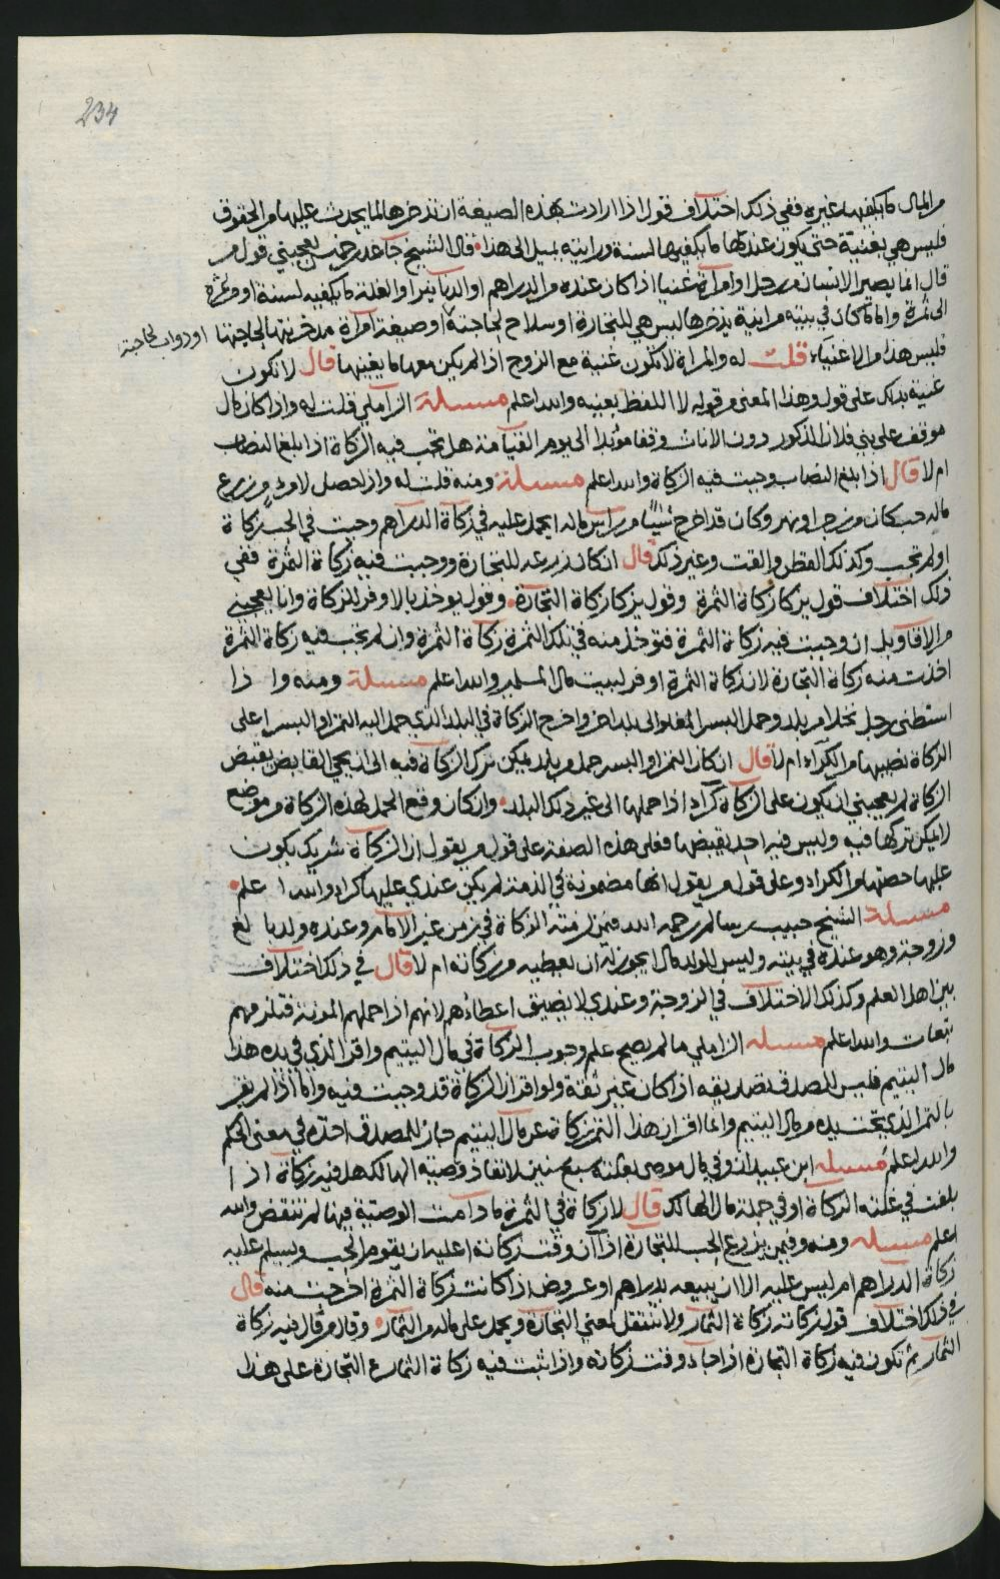 234
من المال ما يكفيها غيره ففي ذلك اختلاف قول اذا ارادت بهذه الصيغة ان تدخرها لما يحدث عليها من الحقوق
فليس هي بغنية حتى يكون عندها ما يكفيها لسنة ورايته يميل الى هذا قال الشيخ يعجبني قول من
قال انما يصير الانسان من رجل او امراة غنيا اذا كان عنده من الدراهم او الدنانير او الغلة ما يكفيه لسنة او من ثمرة
الى ثمرة واما ما كان في بيته من انية يذخرها ليس هي للتجارة او سلاح لحاجته او صيغة امراة مدخرتها لحاجتها
او دواب لحاجته
فليس هذا من الاغنياء قلت له والمراة لا تكون غنية مع الزوج اذا لم يكن معها ما يغنيها قال لا تكون
غنية بذلك على قول وهذا المعنى من قوله لا اللفظ بعينه والله اعلم مسئلة الزاملي قلت له واذا كان مال
موقف على بني فلان الذكور دون الاناث وقفا مؤبدا الى يوم القيامة هل تجب فيه الزكاة اذا بلغ النصاب
ام لا قال اذا بلغ النصاب وجبت فيه الزكاة والله اعلم مسئلة ومنه قلت له وان حصل لامرئ من زرع
ماله حب كان من زجر او نهر وكان قد اخرج شيئا من راس ماله ايحمل عليه في زكاة الدراهم وجبت في الحب زكاة
او لم تجب وكذلك القطن والقت وغير ذلك قال ان كان زرعه للتجارة ووجبت فيه زكاة الثمرة ففي
ذلك اختلاف قول يزكا زكاة الثمرة وقول يزكا زكاة التجارة وقول يوخذ بالاوفر للزكاة وانا يعجبني
من الاقاويل ان وجبت فيه زكاة الثمرة فتوخذ منه في تلك الثمرة زكاة الثمرة وان لم تجب فيه زكاة الثمرة
اخذت منه زكاة التجارة لان زكاة الثمرة اوفر لبيت مال المسلمين والله اعلم مسئلة ومنه واذا
استطنى رجل نخلا من بلد وحمل البسر المغلو الى بلد اخر واخرج الزكاة في البلد الذي حمل اليه التمر او البسر اعلى
الزكاة نصيبها من الكراء ام لا قال ان كان التمر او البسر حمل من بلد يمكن ترك الزكاة فيه الى ان يجي القابض يقبض
الزكاة لم يعجبني ان يكون على الزكاة كراء اذا حملها الى غير ذلك البلد وان كان وقع الحمل لهذه الزكاة من موضع
لا يمكن تركها فيه وليس فيه احد يقبضها فعلى هذه الصفة على قول من يقول ان الزكاة شريك يكون
عليها حصتها من الكراء وعلى قول من يقول انها مضمونة في الذمة لم يكن عندي عليها كراء والله اعلم
مسئلة الشيخ حبيب بن سالم رحمه الله فيمن لزمته الزكاة في زمن غير الامام وعنده ولد بالغ
وزوجة وهو عنده في بيته وليس للولد مال ايجوز له ان يعطيه من زكاته ام لا قال في ذلك اختلاف
بين اهل العلم وكذلك الاختلاف في الزوجة وعندي لا يضيق اعطاءهم لانهم اذا حملهم المونة فتلزمهم
تبعات والله اعلم مسئله الزاملي ما لم يصح علم وجوب الزكاة في مال اليتيم واقر الذي في يده هذا
مال اليتيم فليس للمصدق تصديقه اذا كان غير ثقة ولو اقر ان الزكاة قد وجبت فيه واما اذا لم يقر
بالتمر الذي تحت يده من مال اليتيم وانما اقر ان هذا التمر زكاة عن مال اليتيم جاز للمصدق اخذه في معنى الحكم
والله اعلم مسئله ابن عبيدان وفي مال موصى بغلته سبع سنين لانفاذ وصية الهالك هل فيه زكاة اذا
بلغت في غلته الزكاة او في جملة مال الهالك قال لا زكاة في الثمرة ما دامت الوصية فيها لم تنقض والله
اعلم مسئله ومنه وفيمن يزرع الحب للتجارة اذا آن وقت زكاته اعليه ان يقوم الحب ويسلم عليه
زكاة الدراهم ام ليس عليه الا ان يبيعه بدراهم او عروض اذا كانت زكاة الثمرة اخرجت منه قال
في ذلك اختلاف قول زكاته زكاة الثمار ولا تنتقل لمعني التجارة ويحمل على ماله من الثمار وقال من قال فيه زكاة
الثمار ثم تكون فيه زكاة التجارة اذا جاء وقت زكاته واذا ثبت فيه زكاة الثمار مع التجارة على هذا